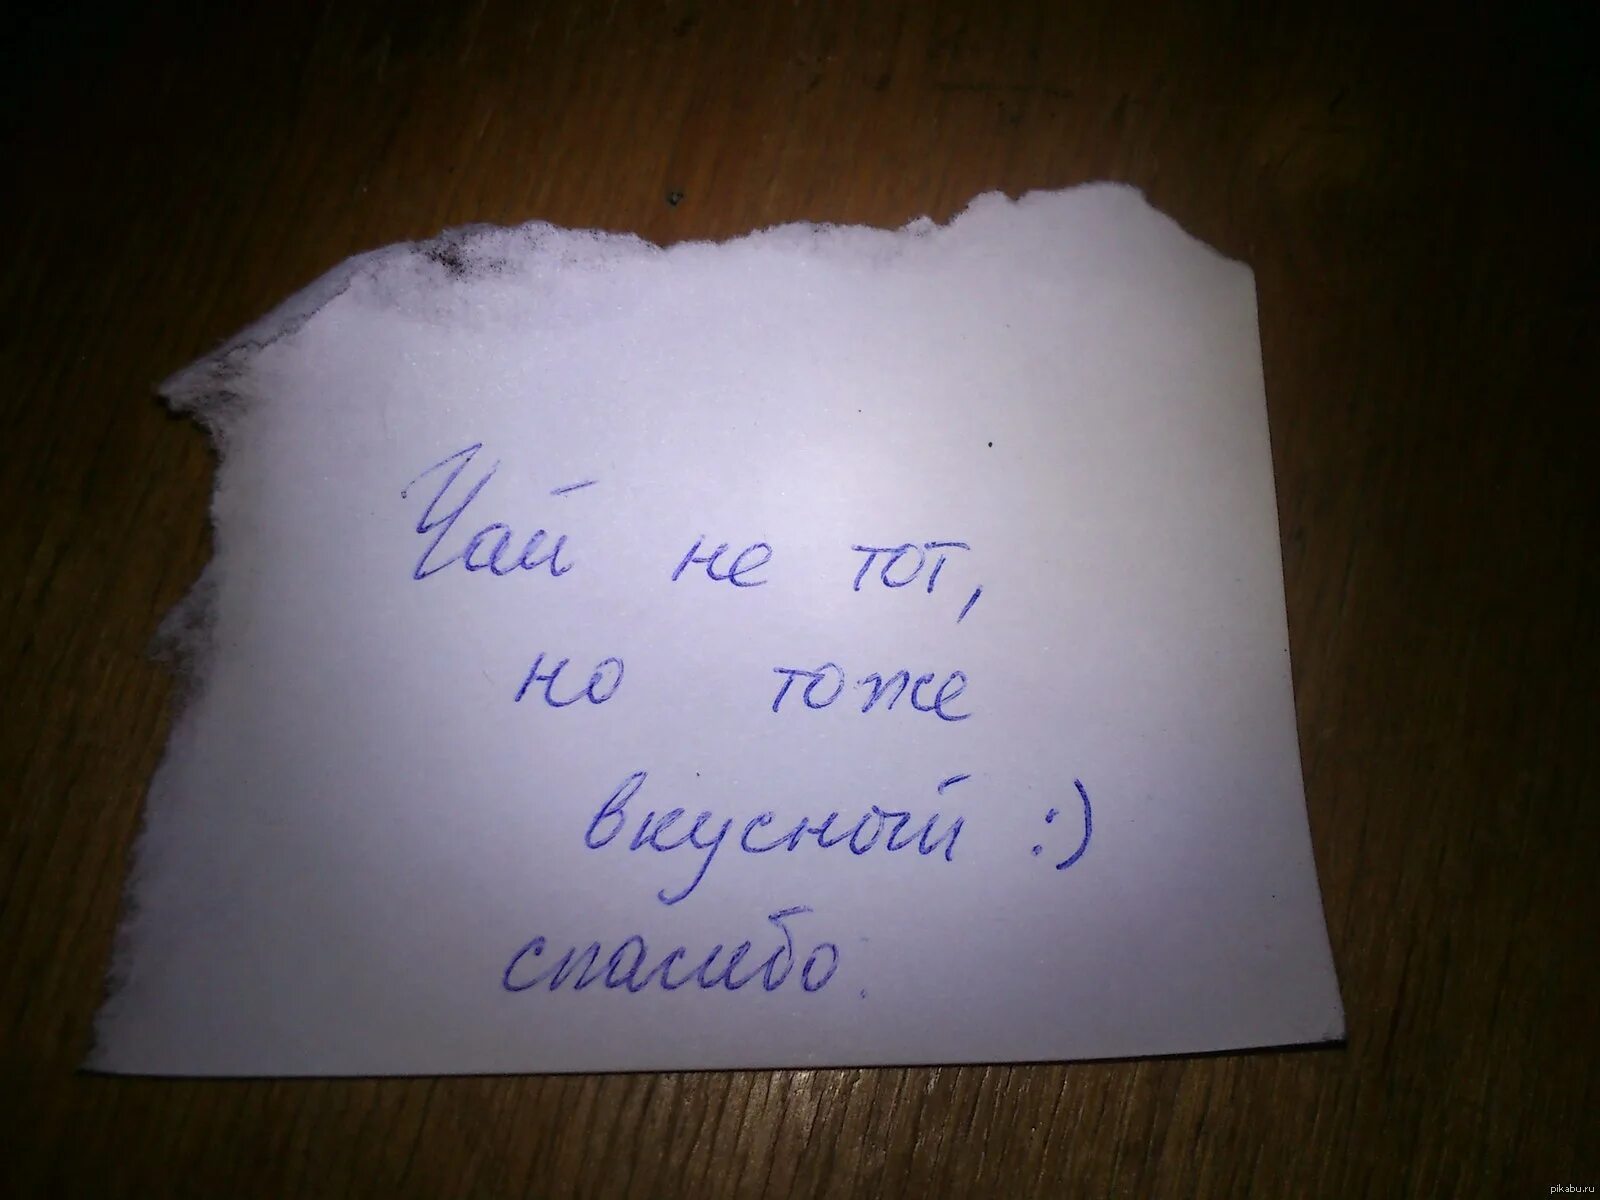 Чай не тот,
но тоже
вкусной :)
спасибо.
pikabu.ru